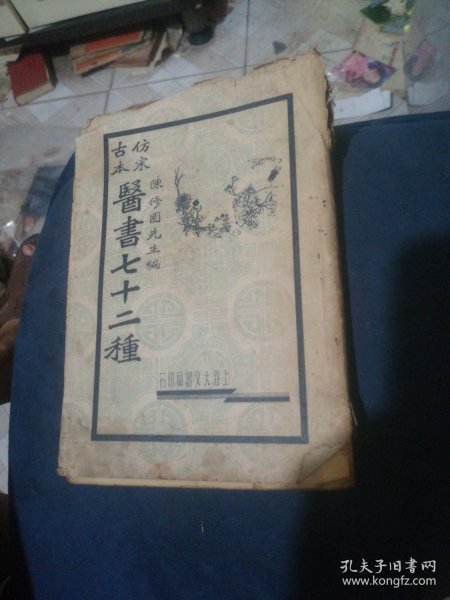 仿宋
古本
陳修園先生編
醫書七十二種
上海大文書局印行
孔夫子旧书网
www.kongfz.com